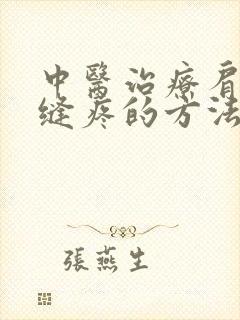 中醫治療肩
缝疼的方法
張燕生